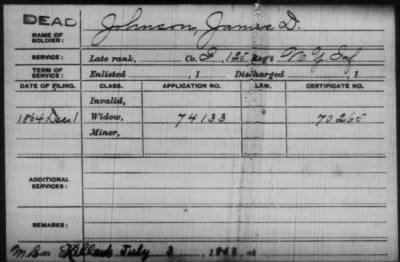 DEAD
Johnson, James D.
NAME OF SOLDIER:
SERVICE: Late rank, Co. , 125 Reg't N. Y. Inf
TERM OF SERVICE: Enlisted , 1 Discharged , 1
DATE OF FILING. CLASS. APPLICATION NO. LAW. CERTIFICATE NO.
Invalid,
1864 Dec 1 Widow, 74133 70265
Minor,
ADDITIONAL SERVICES:
REMARKS:
Killed July